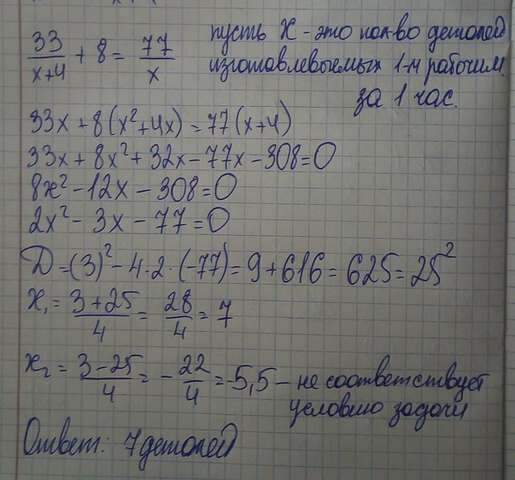 33/(x+4) + 8 = 77/x
пусть X - это кол-во деталей
изготавлевыемых 1-м рабочим
за 1 час.
33x + 8(x² + 4x) = 77(x+4)
33x + 8x² + 32x - 77x - 308 = 0
8x² - 12x - 308 = 0
2x² - 3x - 77 = 0
D = (3)² - 4·2·(-77) = 9 + 616 = 625 = 25²
x₁ = (3+25)/4 = 28/4 = 7
x₂ = (3-25)/4 = -22/4 = -5,5 - не соответствует
условию задачи
Ответ: 7 деталей